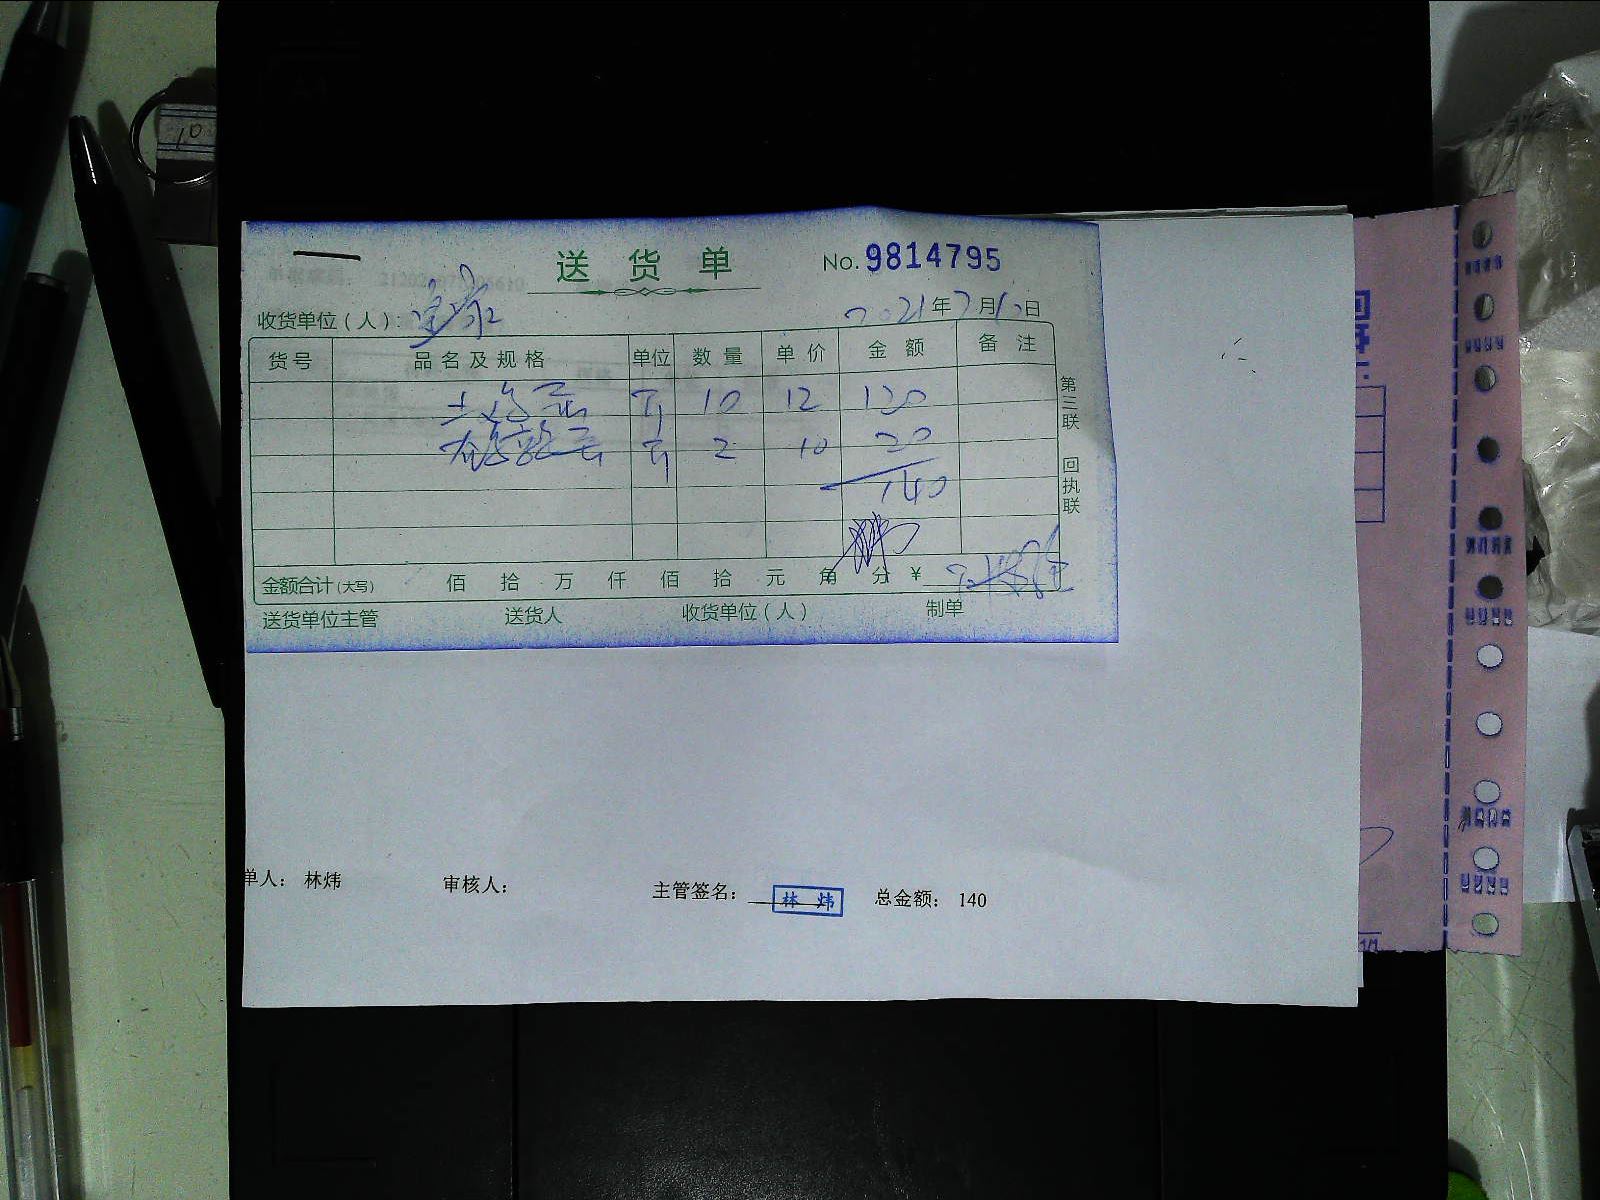 送货单 No. 9814795
收货单位（人）：
2021年7月10日
货号 品名及规格 单位 数量 单价 金额 备注
土鸡蛋 斤 10 12 120
斤 2 10 20
140
第三联 回执联
金额合计(大写) 佰 拾 万 仟 佰 拾 元 角 分 ¥
送货单位主管 送货人 收货单位（人） 制单
单人： 林炜 审核人： 主管签名： 林炜 总金额： 140
10